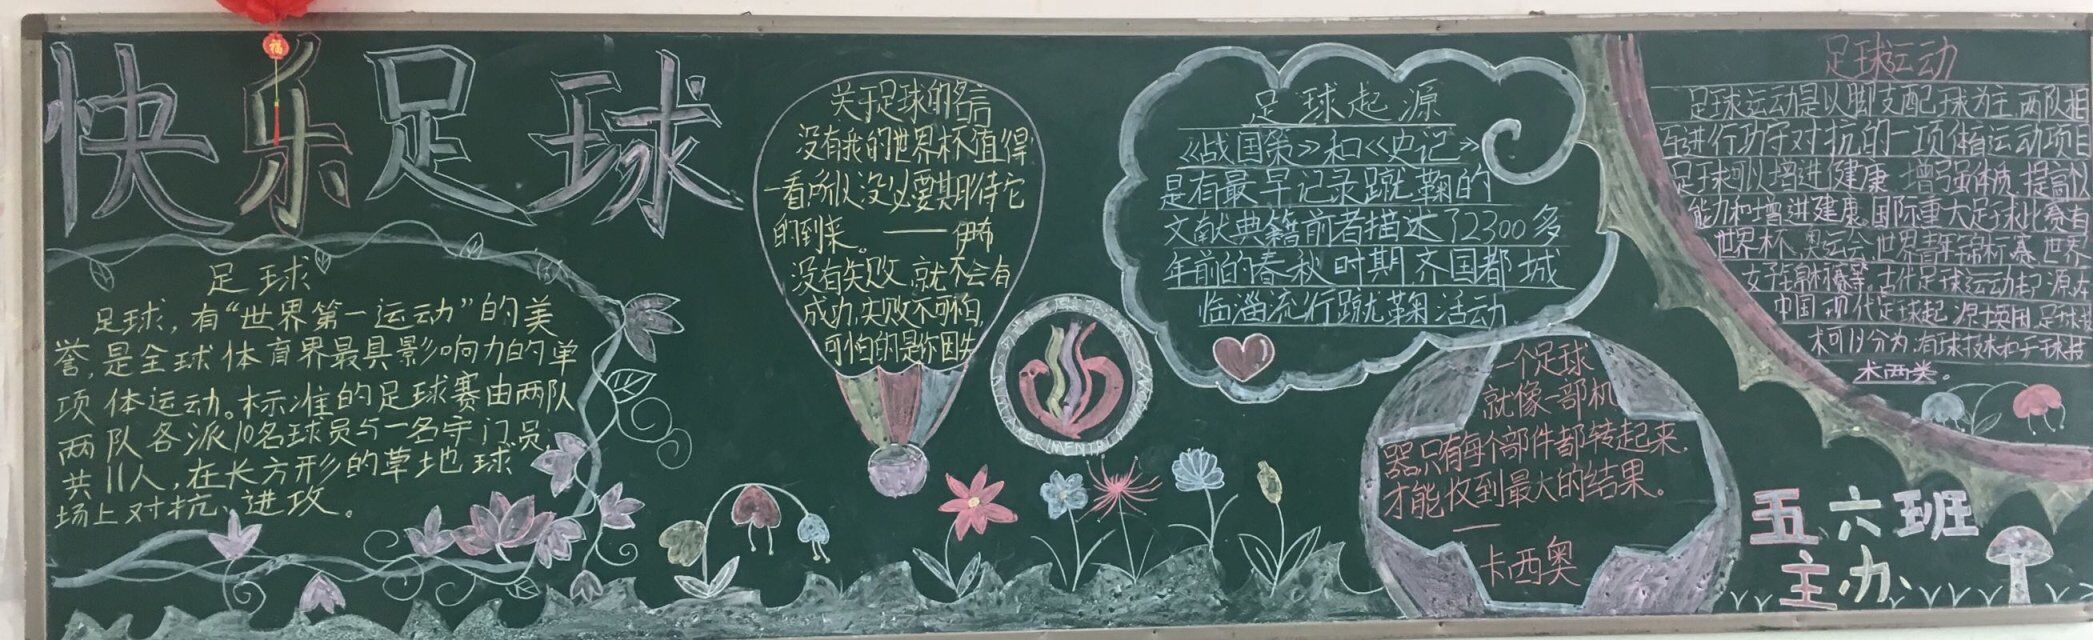 福
快乐足球
足球
足球,有“世界第一运动”的美
誉,是全球体育界最具影响力的单
项体运动。标准的足球赛由两队
两队各派10名球员与一名守门员
共11人,在长方形的草地球
场上对抗、进攻。
关于足球的名言
没有我的世界杯不值得
一看所以没必要期待它
的到来。——伊布
没有失败,就不会有
成功,失败不可怕,
可怕的是你因失
足球起源
《战国策》和《史记》
是有最早记录蹴鞠的
文献典籍前者描述了2300多
年前的春秋时期齐国都城
临淄流行蹴鞠活动
一个足球
就像一部机
器只有每个部件都转起来,
才能收到最大的结果。
——
卡西奥
足球运动
足球运动是以脚支配球为主两队相
互进行攻守对抗的一项体育运动项目
足球可以增进健康 增强体质 提高
能力和增进健康国际重大足球比赛有
世界杯,奥运会世界青年锦标赛世界
女子锦标赛等,古代足球运动起源
中国 现代足球起源英国足球技
术可以分为有球技术和无球技
术两类。
五六班
主办